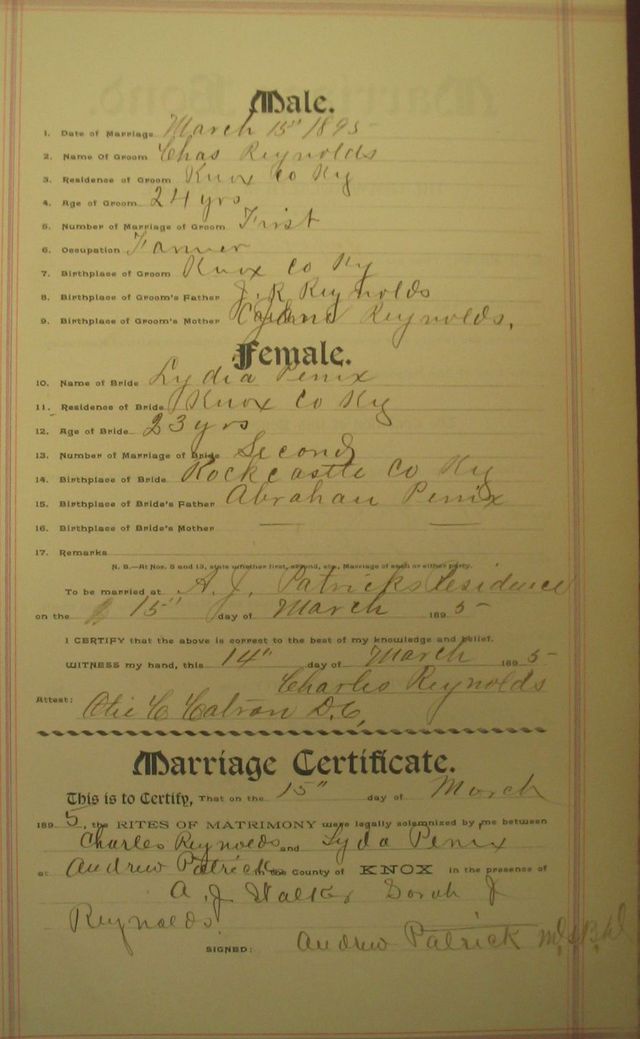 Male.
1. Date of Marriage March 15" 1895
2. Name of Groom Chas Reynolds
3. Residence of Groom Knox Co Ky
4. Age of Groom 24 yrs
5. Number of Marriage of Groom First
6. Occupation Farmer
7. Birthplace of Groom Knox Co Ky
8. Birthplace of Groom's Father J. R Reynolds
9. Birthplace of Groom's Mother Reynolds.
Female.
10. Name of Bride Lydia Penix
11. Residence of Bride Knox Co Ky
12. Age of Bride 23 yrs
13. Number of Marriage of Bride Second
14. Birthplace of Bride Rockcastle Co Ky
15. Birthplace of Bride's Father Abraham Penix
16. Birthplace of Bride's Mother — —
17. Remarks
N. B.—At Nos. 5 and 13, state whether first, second, etc., Marriage of each or either party.
To be married at A. J. Patricks Residence
on the 15" day of March 1895
I CERTIFY that the above is correct to the best of my knowledge and belief.
WITNESS my hand, this 14" day of March 1895
Charles Reynolds
Attest: Catron D.C.
Marriage Certificate.
This is to Certify, That on the 15" day of March
1895, the RITES OF MATRIMONY were legally solemnized by me between
Charles Reynolds and Lyda Penix
at Andrew Patrick in the County of KNOX in the presence of
A J Walker Sarah J
Reynolds
SIGNED: Andrew Patrick